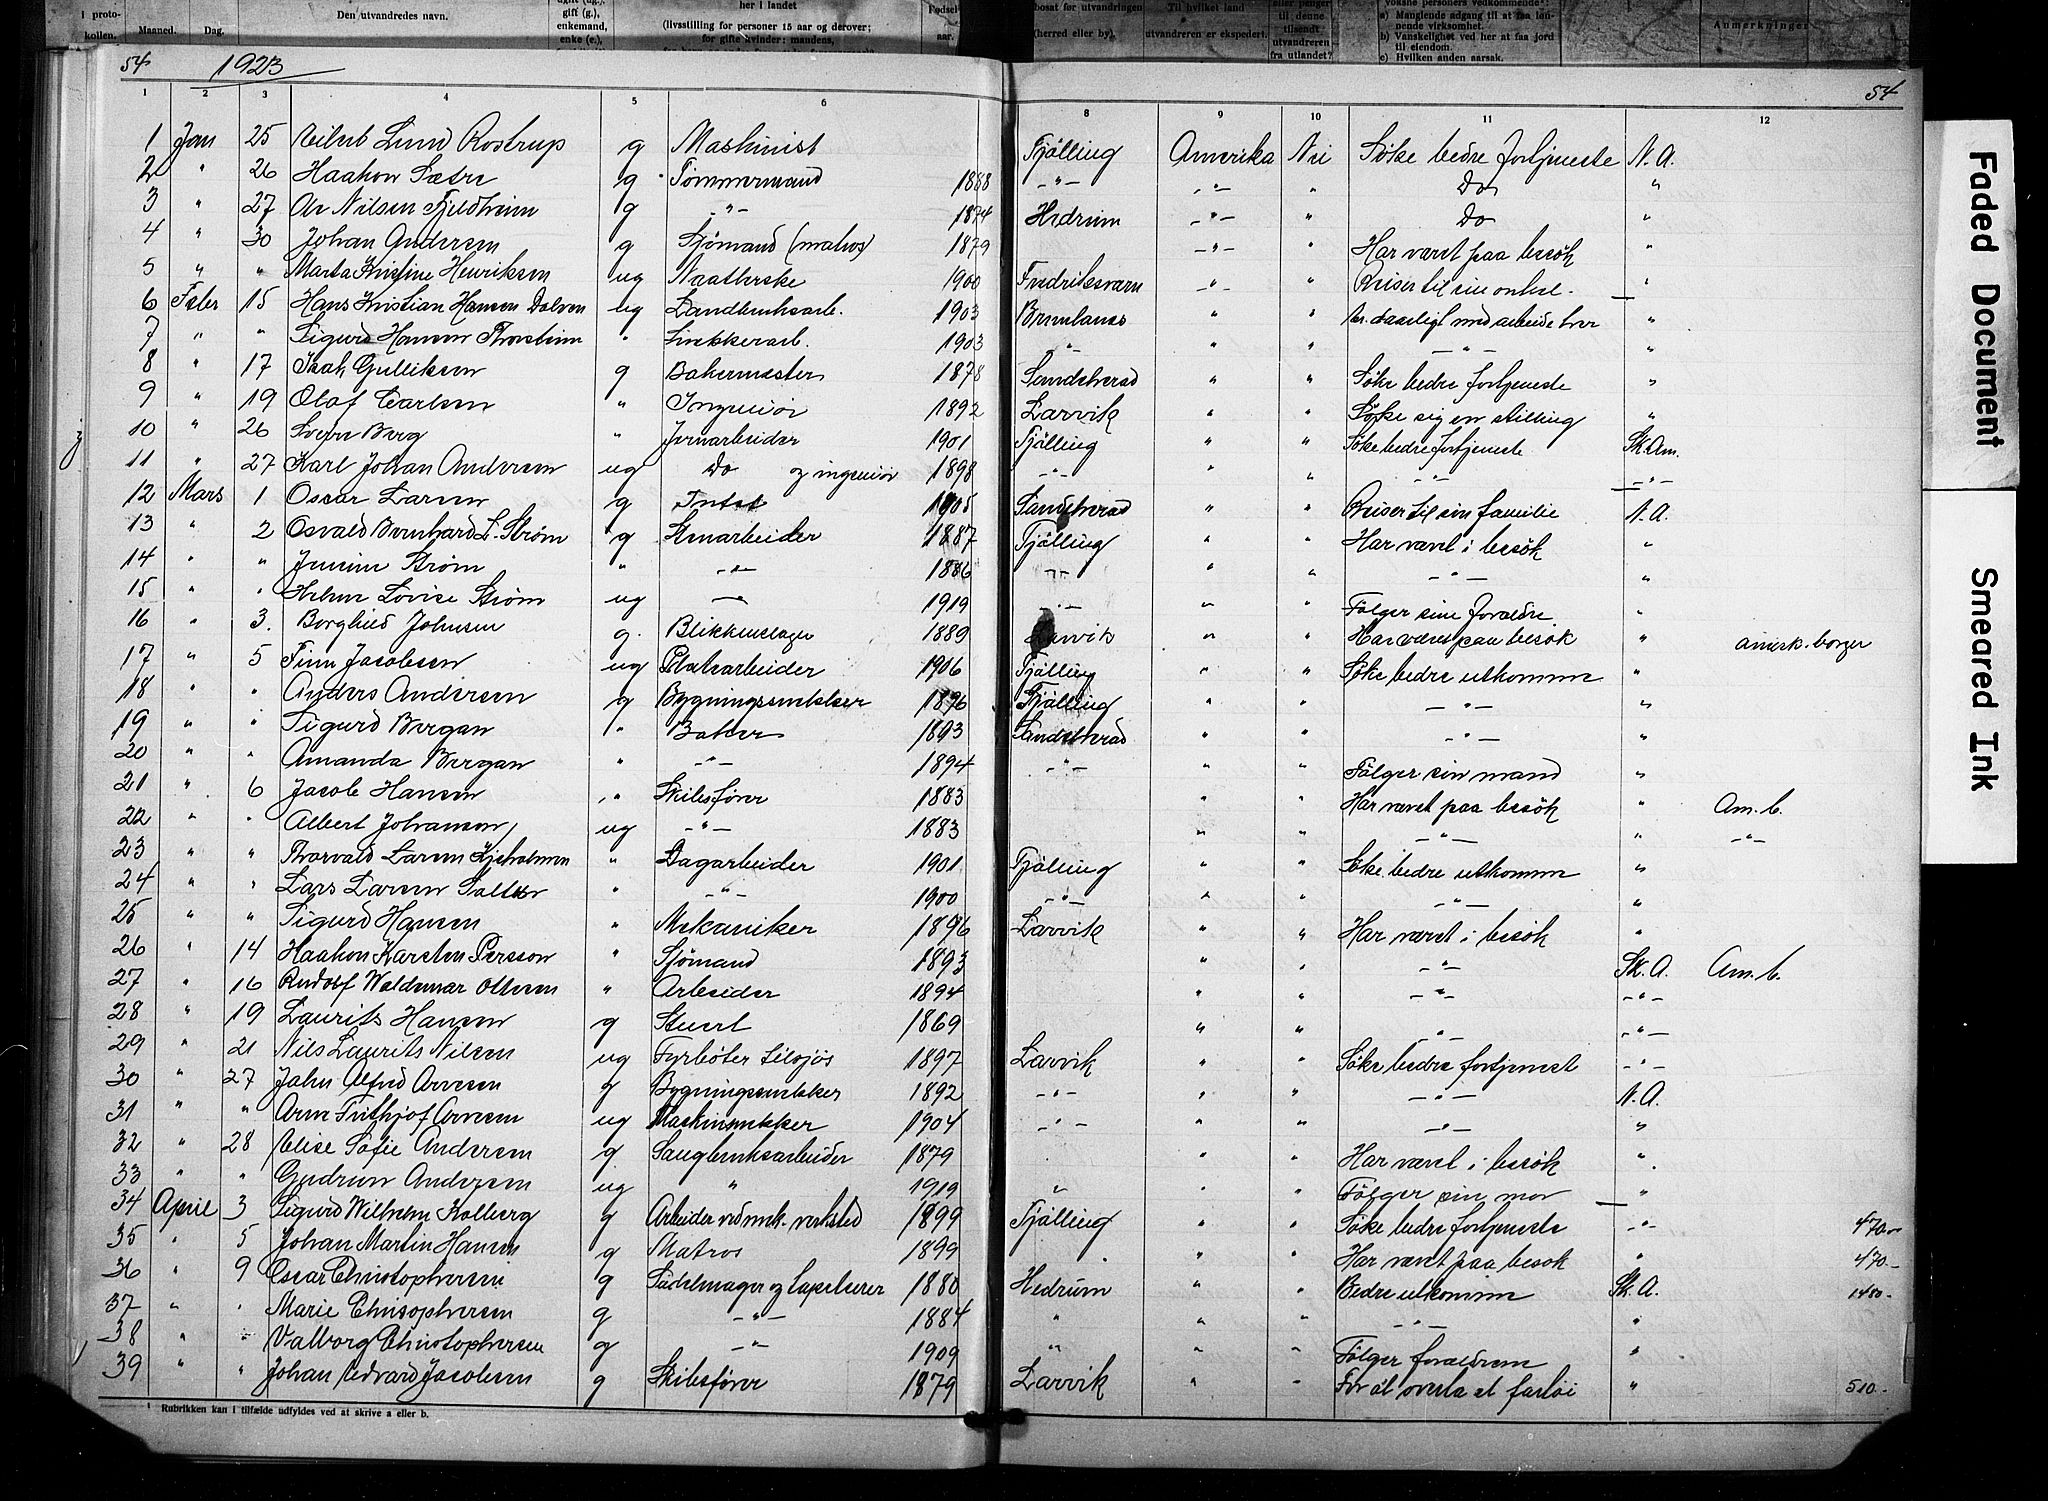 i proto-
kollen.
Maaned.
Dag.
Den utvandredes navn.
gift (g.),
enkemand,
enke (e.),
her i landet
(livsstilling for personer 15 aar og derover;
for gifte kvinder: mandens,
Fødsels-
aar.
bosat før utvandringen
(herred eller by).
Til hvilket land
utvandreren er ekspedert.
til denne
tilsendt
utvandreren
fra utlandet?
voksne personers vedkommende:
a) Manglende adgang til at faa løn-
nende virksomhet.
b) Vanskelighet ved her at faa jord
til eiendom.
c) Hvilken anden aarsak.
Anmerkninger
54 1923 54
1 2 3 4 5 6 8 9 10 11 12
1 Jan 25 Lund Rostrup g Maskinist Tjølling Amerika Nei Søke bedre fortjeneste N.A.
2 " 26 Haakon Sætre g Tømmermand 1888 -"- -"- " Do "
3 " 27 Nilsen Fjeldheim g -"- 1874 Hedrum -"- " Do "
4 " 30 Johan Andersen g Sjømand (matros) 1879 -"- " Har været paa besøk "
5 " " Marta Kristine Henriksen ug 1900 Fredriksværn -"- " Reiser til sin onkel. "
6 Feber 15 Hans Kristian Hansen Dolven ug Landbruksarb. 1903 Brunlanes " " daarligt med arbeide her "
7 " " Sigurd Hansen ug Snekkerarb. 1903 -"- " " -"- "
8 " 17 Isak Gulliksen g Bakermester 1878 Sandeherad " " Søke bedre fortjeneste "
9 " 19 Olaf Carlsen " Ingeniør 1892 Larvik " " Søke sig en stilling "
10 " 26 Berg " Jernarbeider 1901 Tjølling " " Søke bedre fortjeneste Sk.Am.
11 " 27 Karl Johan Andersen ug Do og ingeniør 1898 -"- " " -"- -"-
12 Mars 1 Oscar Larsen g Intet 1905 Sandeherad " " Reiser til sin familie N.A.
13 " 2 Osvald Bernhard L. Strøm g Stenarbeider 1887 Tjølling " " Har været i besøk "
14 " " Strøm " -"- 1886 -"- " " -"- "
15 " " Helene Lovise Strøm ug -"- 1919 -"- " " Følger sine forældre "
16 " 3. Borghild Johnsen g. Blikkenslager 1889 Larvik " " Har været paa besøk " amerk. borger
17 " 5 Finn Jacobsen ug Platearbeider 1906 Tjølling " " Søke bedre utkomme "
18 " " Anders Andersen g Bygningssnekker 1896 Tjølling " " -"- "
19 " " Sigurd Bergan " Baker 1893 Sandeherad " " -"- "
20 " " Amanda Bergan " -"- 1894 -"- " " Følger sin mand "
21 " 6 Jacob Hansen " Skibsfører 1883 " " Har været paa besøk " Am. b.
22 " " Albert Johansen ug -"- 1883 " " -"- " -"-
23 " " Thorvald Larsen " Dagarbeider 1901 Tjølling " " Søke bedre utkomme "
24 " " Lars Larsen " -"- 1900 -"- " " -"- "
25 " " Sigurd Hansen " Mekaniker 1896 Larvik " " Har været i besøk "
26 " 14 Haakon Karsten Persson " Sjømand 1893 " " -"- Sk.A. Am. b.
27 " 16 Rudolf Waldemar Ottesen " Arbeider 1894 " " -"- -"-
28 " 19 Laurits Hansen g Stuert 1869 " " " -"-
29 " 21 Nils Laurits Nilsen ug Fyrbøter tilsjøs 1897 Larvik " " Søke bedre fortjenest -"-
30 " 27 John Alfred Arvesen g Bygningssnekker 1892 -"- " " -"- N.A.
31 " " Arne Frithjof Arvesen ug Maskinsnekker 1904 -"- " " -"- "
32 " 28 Elise Sofie Andersen g Sagbruksarbeider 1879 " " Har været i besøk "
33 " " Gudrun Andersen ug " 1919 " " " Følger sin mor "
34 April 3 Sigurd Wilhelm Kolberg g Arbeider ved mek. verksted 1899 Tjølling " " Søke bedre fortjeneste -"- 470.-
35 " 5 Johan Martin Hansen g Matros 1899 " " " Har været paa besøk " 470.-
36 " 9 Oscar Christophersen g Sadelmager og tapetserer 1880 Hedrum " " Bedre utkomme Sk.A. 1480.-
37 " " Marie Chrisophersen g -"- 1884 " " " -"- "
38 " " Valborg Christophersen g -"- 1909 " " " Følger forældrene "
39 " " Johan Edvard Jacobsen g Skibsfører 1879 Larvik " " For at overta et fartøi " 510.-
¹ Rubrikken kan i tilfælde udfyldes ved at skrive a eller b.
Faded Document
Smeared Ink